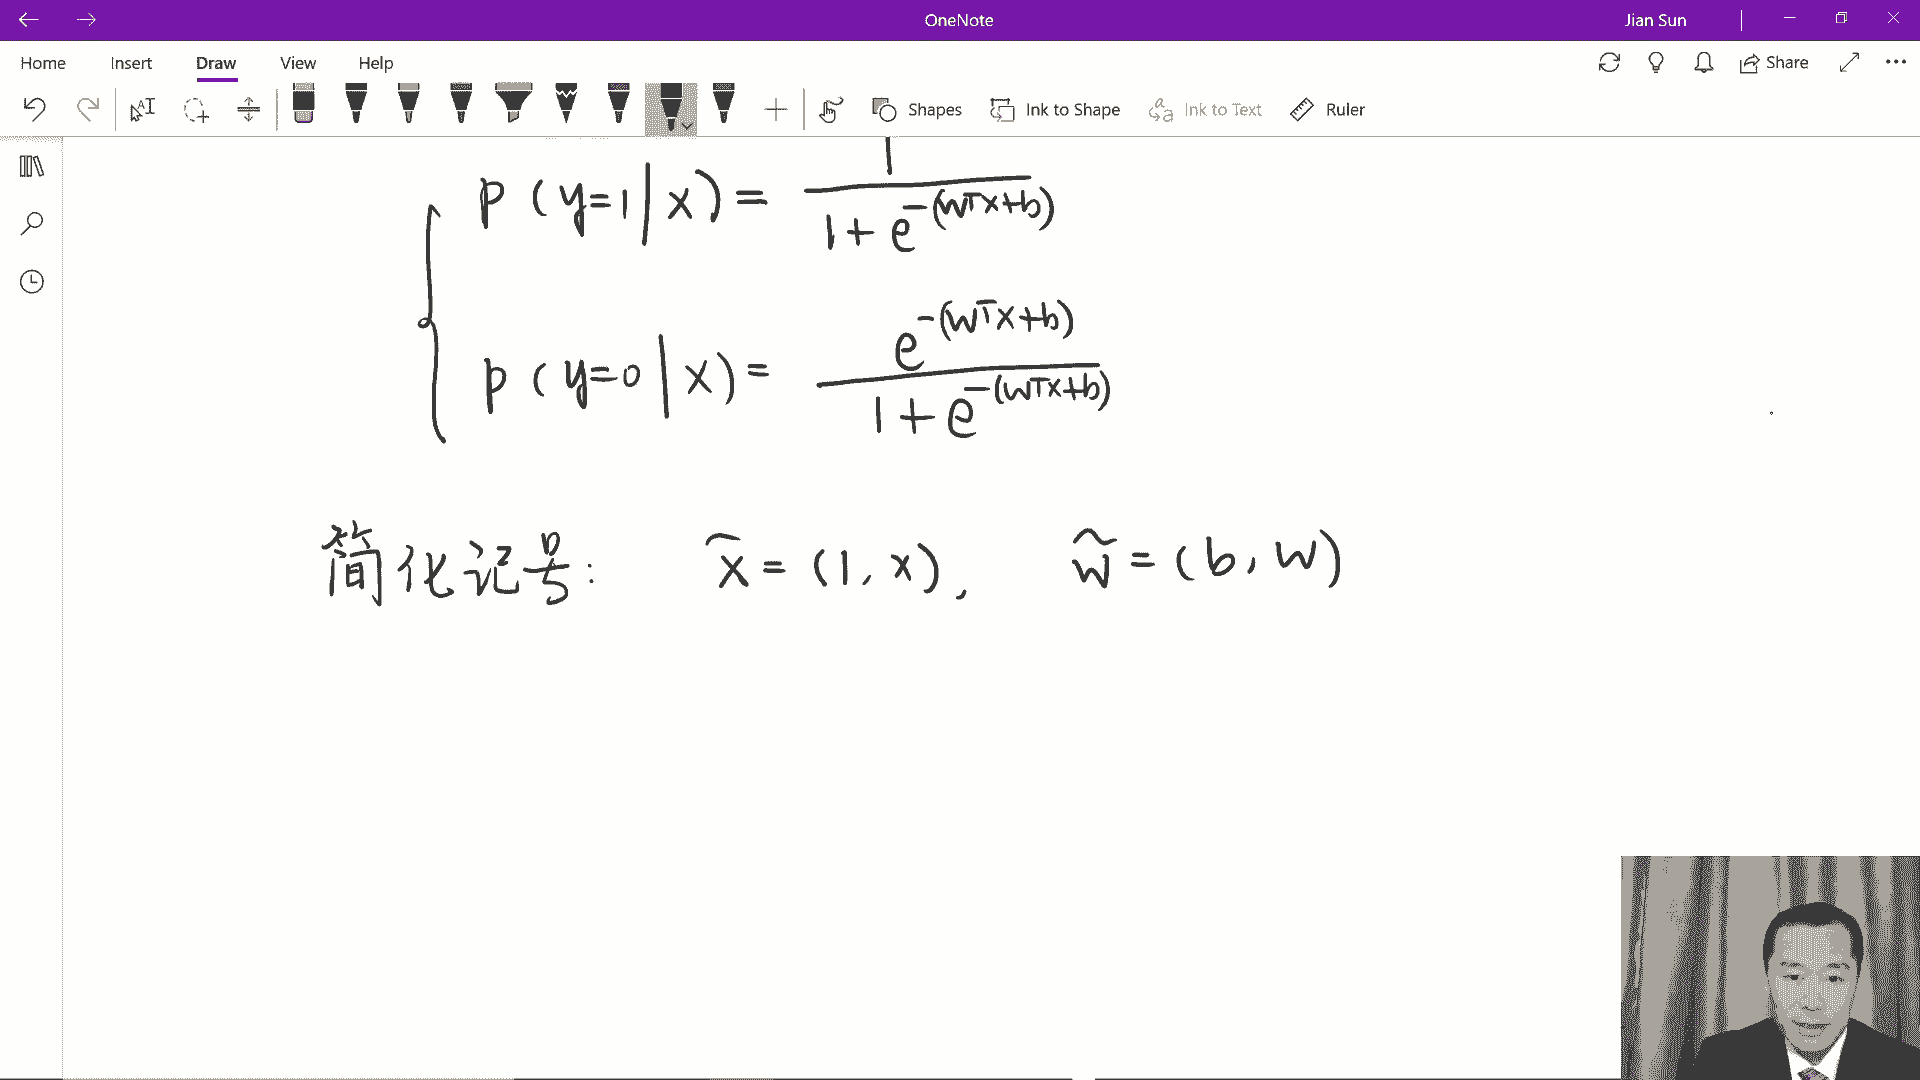 OneNote
Jian Sun
Home Insert Draw View Help
Share
Shapes Ink to Shape Ink to Text Ruler
p(y=1|x) = 1 / (1+e^{-(wᵀx+b)})
p(y=0|x) = e^{-(wᵀx+b)} / (1+e^{-(wᵀx+b)})
简化记号: x̃=(1, x), w̃=(b, w)